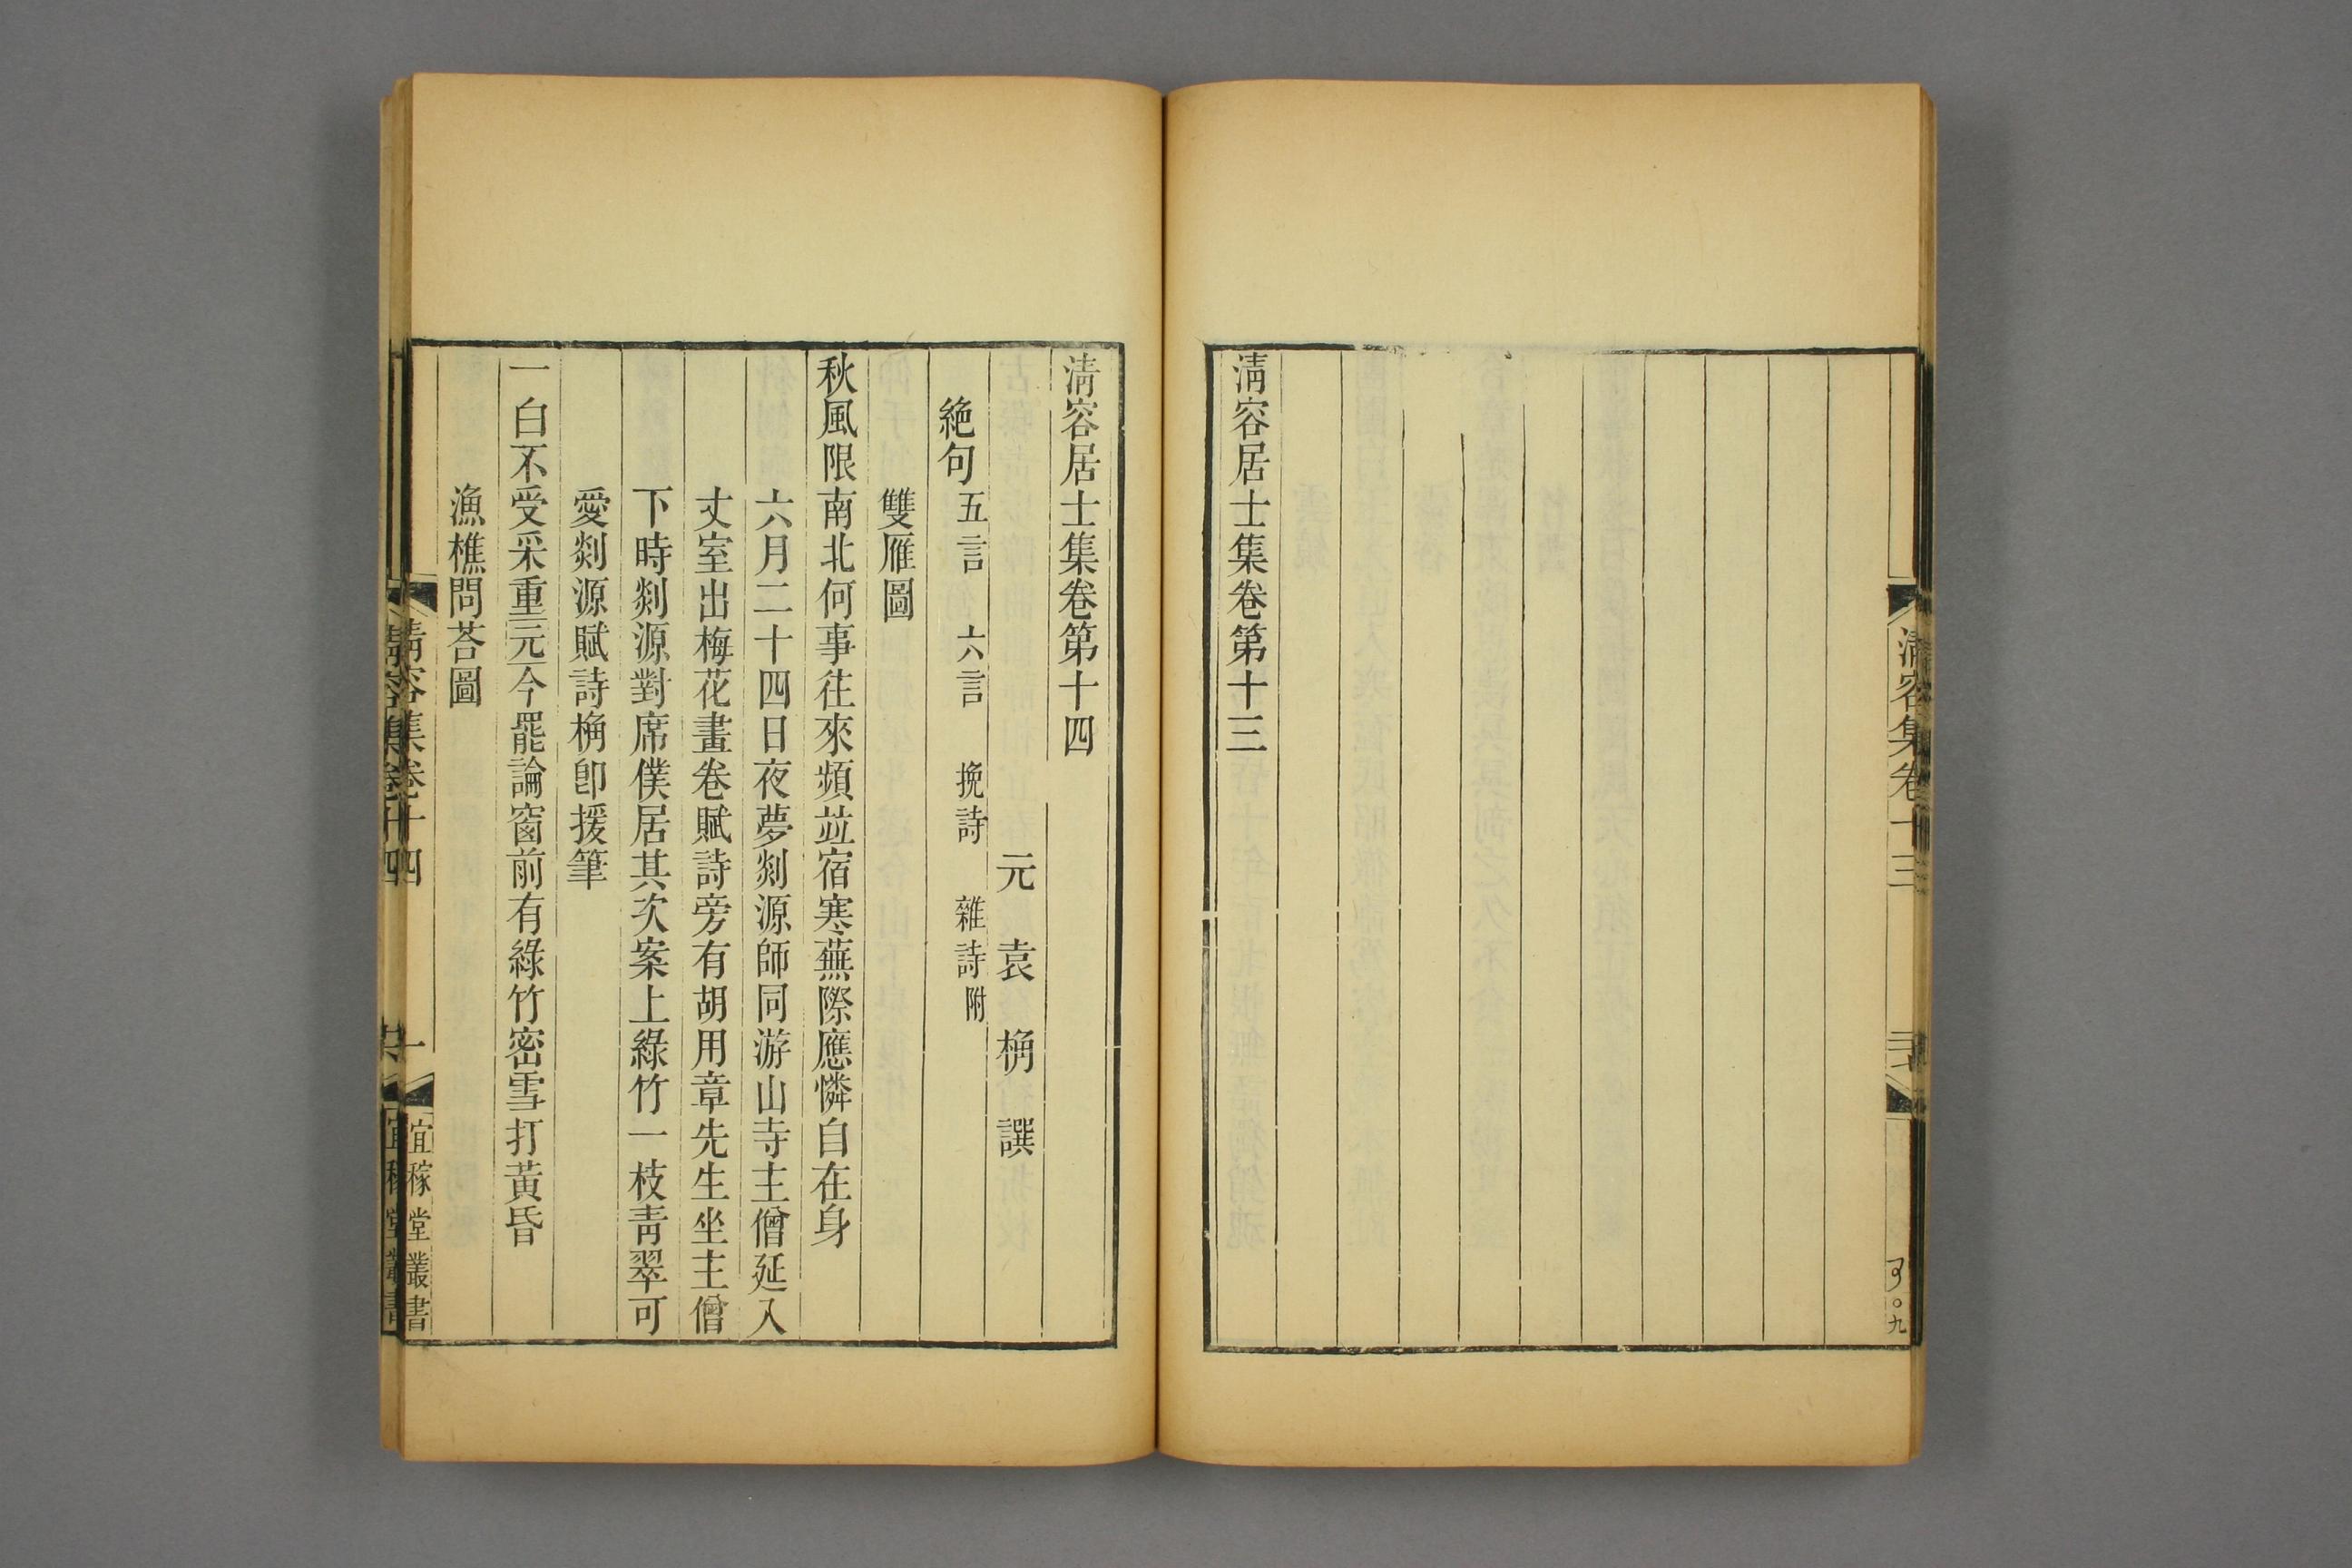 清容集卷十三
清容居士集卷第十三
清容居士集卷第十四
元 袁 桷 譔
絶句 五言 六言 挽詩 雜詩附
雙雁圖
秋風限南北何事往來頻竝宿寒蕪際應憐自在身
六月二十四日夜夢剡源師同游山寺主僧延入
丈室出梅花畫卷賦詩旁有胡用章先生坐主僧
下時剡源對席僕居其次案上綠竹一枝靑翠可
愛剡源賦詩桷卽援筆
一白不受采重元今罷論窗前有綠竹密雪打黃昏
漁樵問荅圖
清容集卷十四
一
宜稼堂叢書